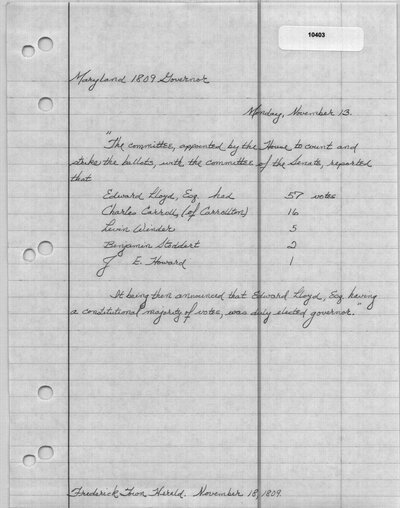 10403
Maryland 1809 Governor
Monday, November 13.
"The committee, appointed by the House to count and
strike the ballots, with the committee of the Senate, reported
that
Edward Lloyd, Esq. had 57 votes
Charles Carroll, (of Carrollton) 16
Levin Winder 5
Benjamin Stoddert 2
J E. Howard 1
It being then announced that Edward Lloyd, Esq. having
a constitutional majority of votes, was duly elected governor."
Frederick Town Herald. November 18, 1809.